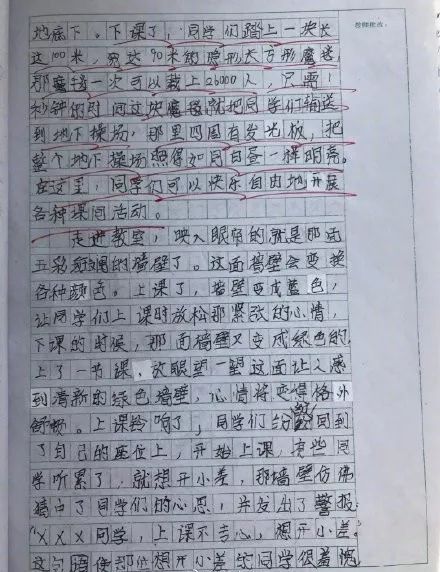 教师批改:
地底下。下课了,同学们踏上一块长
达100米,宽达90米的隐形长方形魔毯,
那魔毯一次可以载上26000人,只需1
秒钟的时间这块魔毯就把同学们输送
到地下操场,那里四周有发光板,把
整个地下操场照得如同白昼一样明亮。
在这里,同学们可以快乐自由地开展
各种课间活动。
走进教室,映入眼帘的就是那面
五彩斑斓的墙壁了。这面墙壁会变换
各种颜色。上课了,墙壁变成蓝色,
让同学们上课时放松那紧张的心情,
下课的时候,那面墙壁又变成绿色的,
上了一节课,放眼望一望这面让人感
到清新的绿色墙壁,心情将变得格外
舒畅。上课铃响了,同学们纷纷回到
了自己的座位上,开始上课,有些同
学听累了,就想开小差,那墙壁仿佛
猜中了同学们的心思,并发出了警报:
“×××同学,上课不专心,想开小差。”
这句语使那位想开小差的同学很羞愧